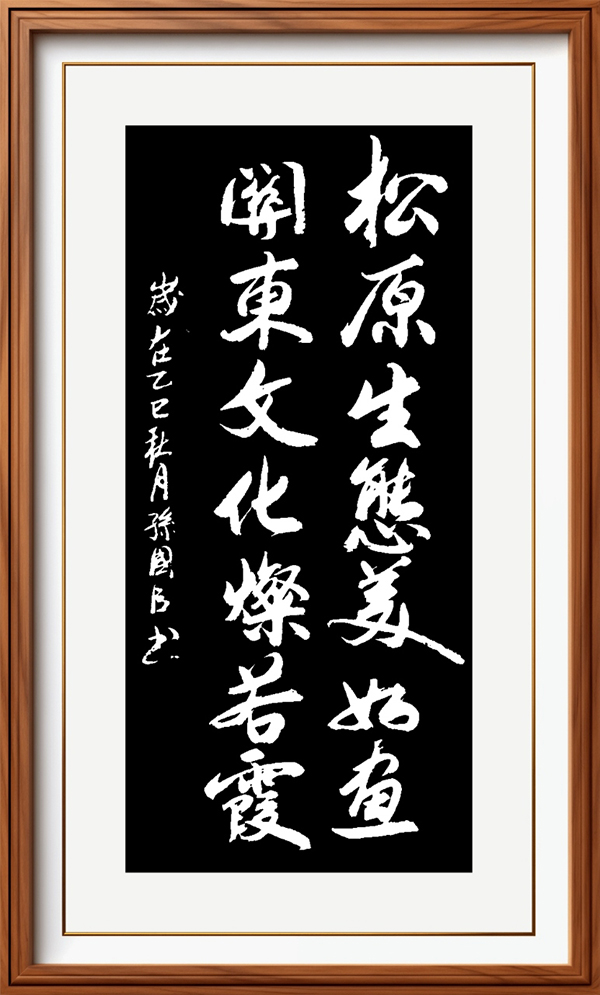 松原生態美如画
關東文化燦若霞
歲在乙巳秋月孫國乃书